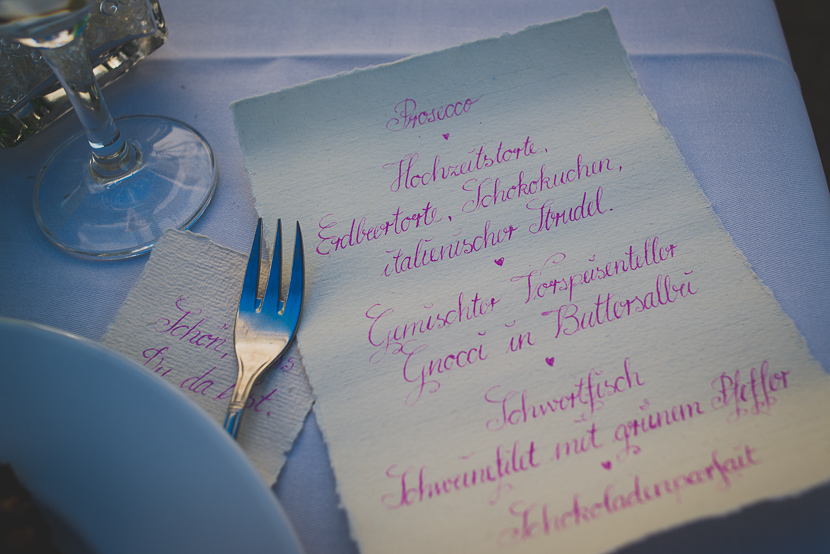 Prosecco
Hochzeitstorte,
Erdbeertorte, Schokokuchen,
italienischer Strudel.
Gemischter Vorspeisenteller
Gnocci in Buttersalbei
Schwertfisch
Schweinefilet mit grünem Pfeffer
Schokoladenparfait
Schön,
Du da